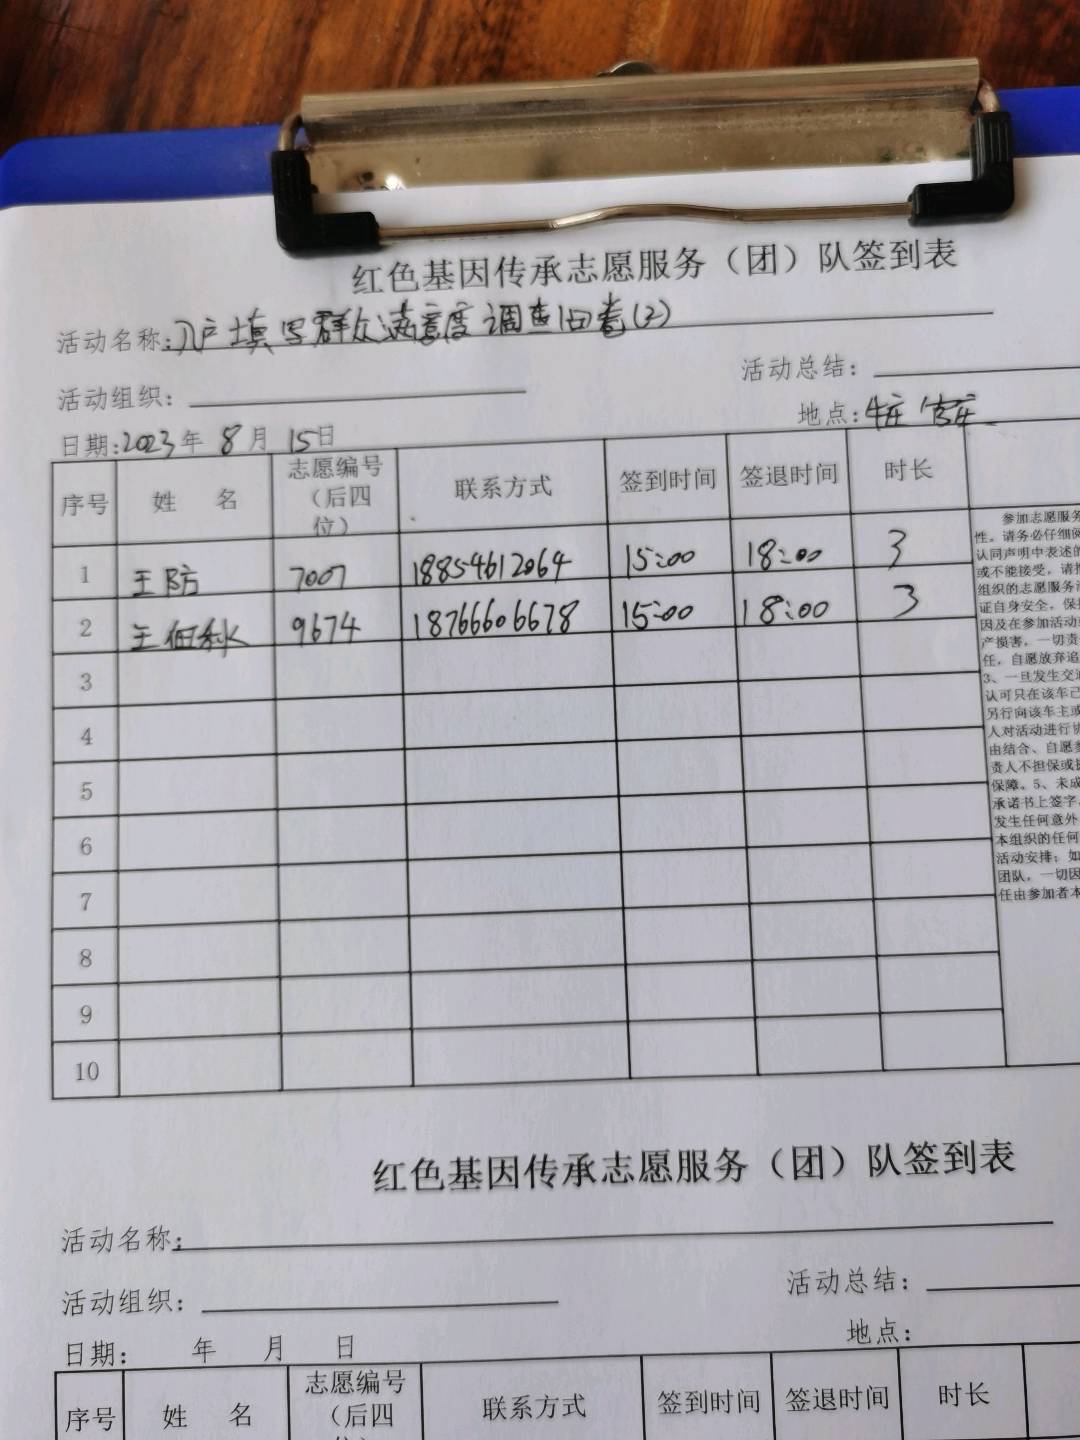 红色基因传承志愿服务（团）队签到表
活动名称:入户填写群众满意度调查问卷(2)
活动组织：
活动总结：
日期:2023年 8月 15日
地点:
序号 姓 名 志愿编号（后四位） 联系方式 签到时间 签退时间 时长
1 王防 7007 18854612064 15:00 18:00 3
2 王 9674 18766606678 15:00 18:00 3
3
4
5
6
7
8
9
10
参加志愿服务
性。请务必仔细阅
认同声明中表述的
或不能接受，请
组织的志愿服务
证自身安全，保
因及在参加活动
产损害，一切责
任，自愿放弃追
3、一旦发生交通
认可只在该车已
另行向该车主或
人对活动进行
由结合、自愿
责人不担保或
保障。5、未成
承诺书上签字
发生任何意外
本组织的任何
活动安排；如
团队，一切因
任由参加者本
红色基因传承志愿服务（团）队签到表
活动名称：
活动组织：
活动总结：
日期： 年 月 日
地点：
序号 姓 名 志愿编号（后四 联系方式 签到时间 签退时间 时长